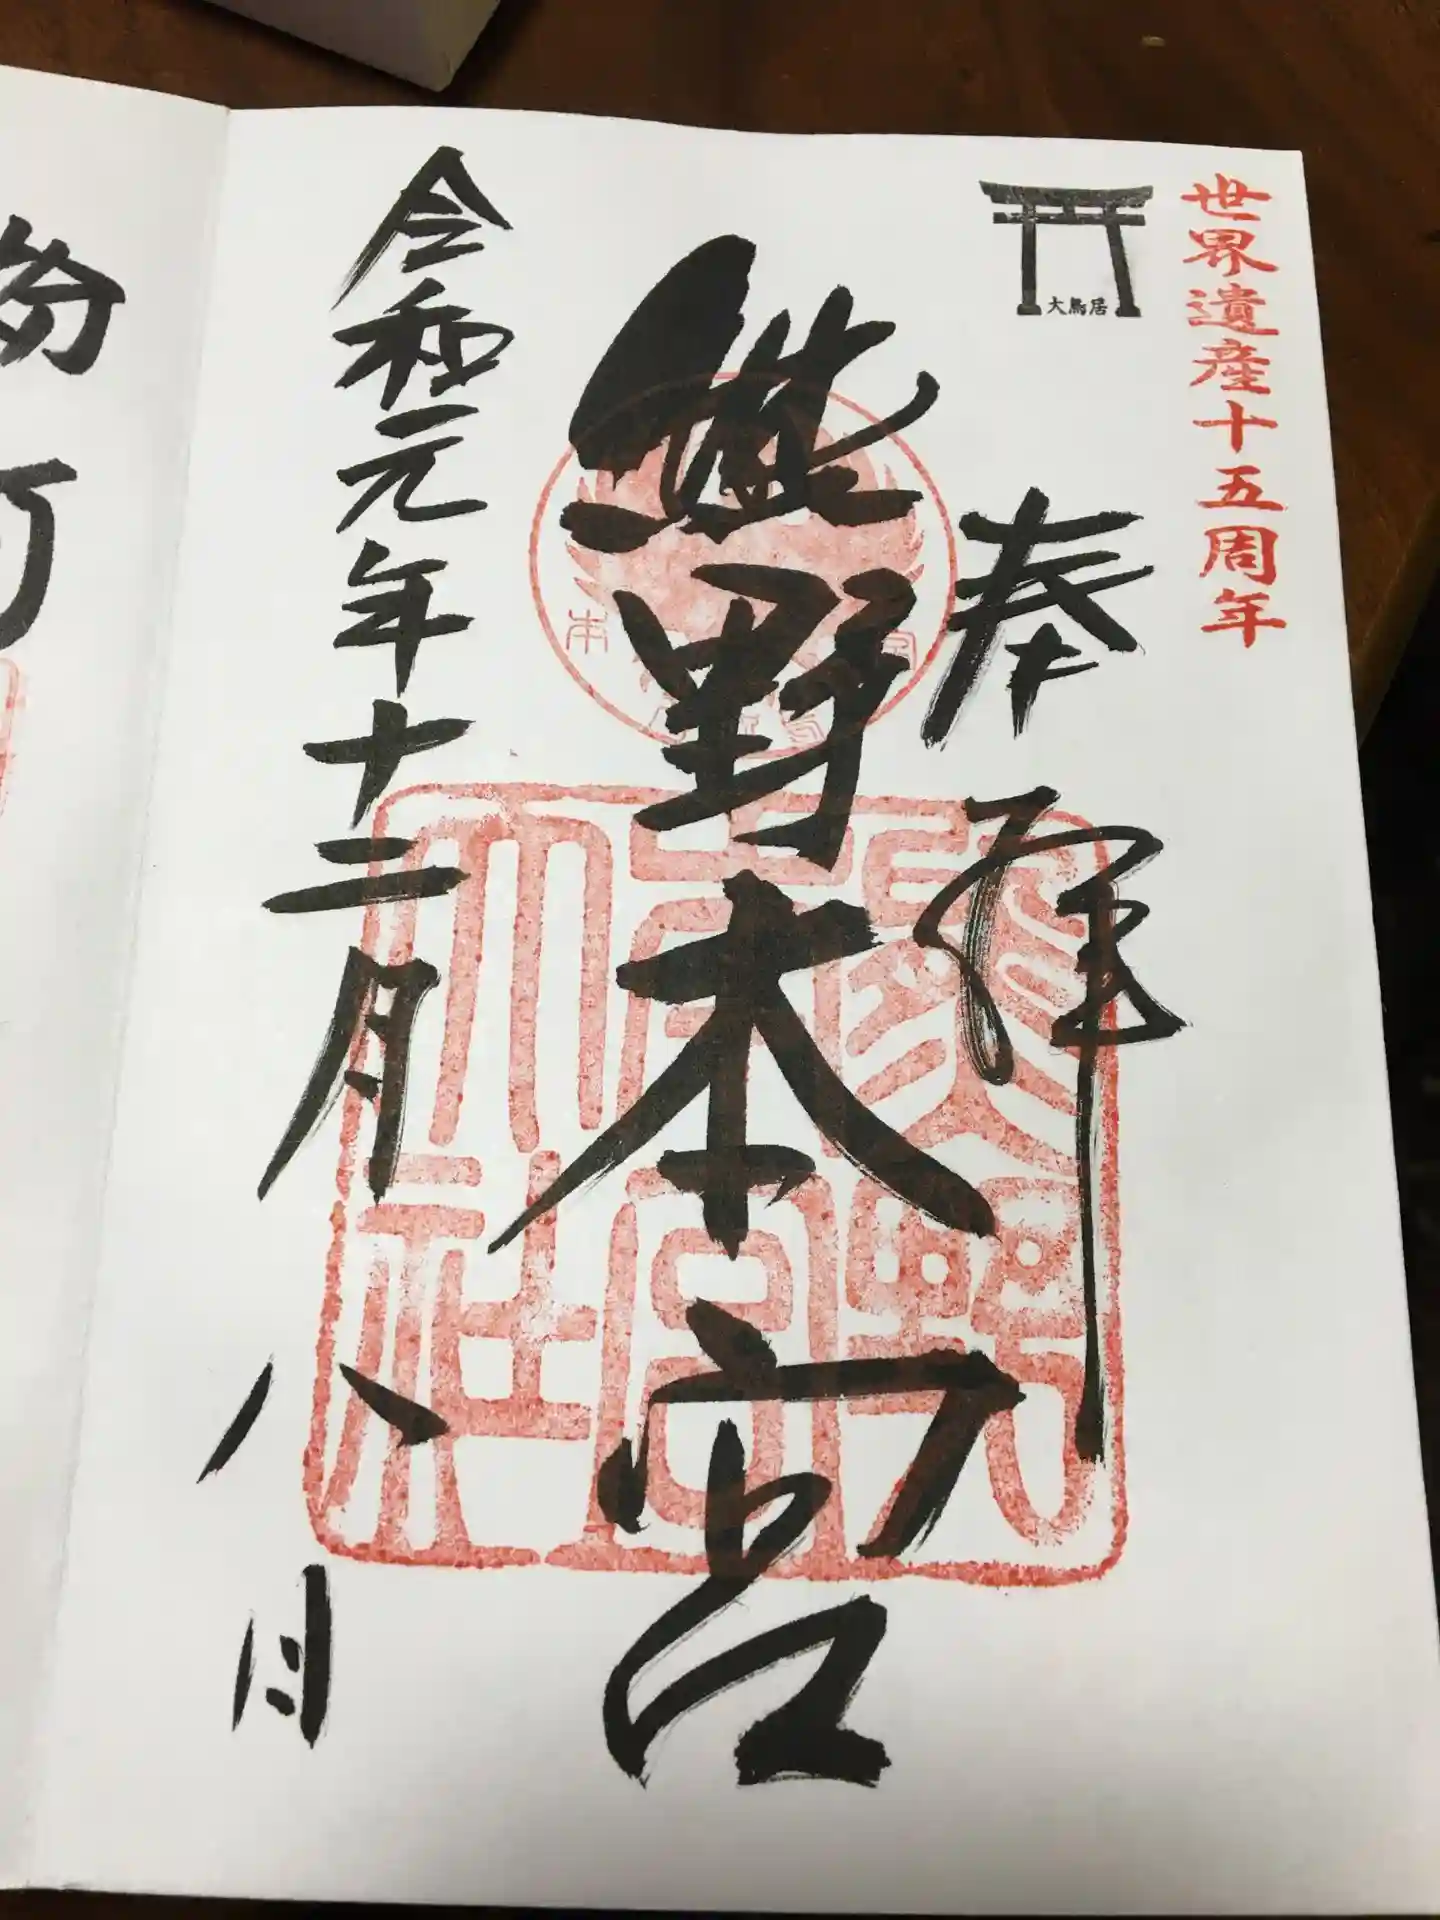 世界遺産十五周年
大鳥居
奉拝
熊野本宮
本
熊野本宮大社
令和元年十二月八日